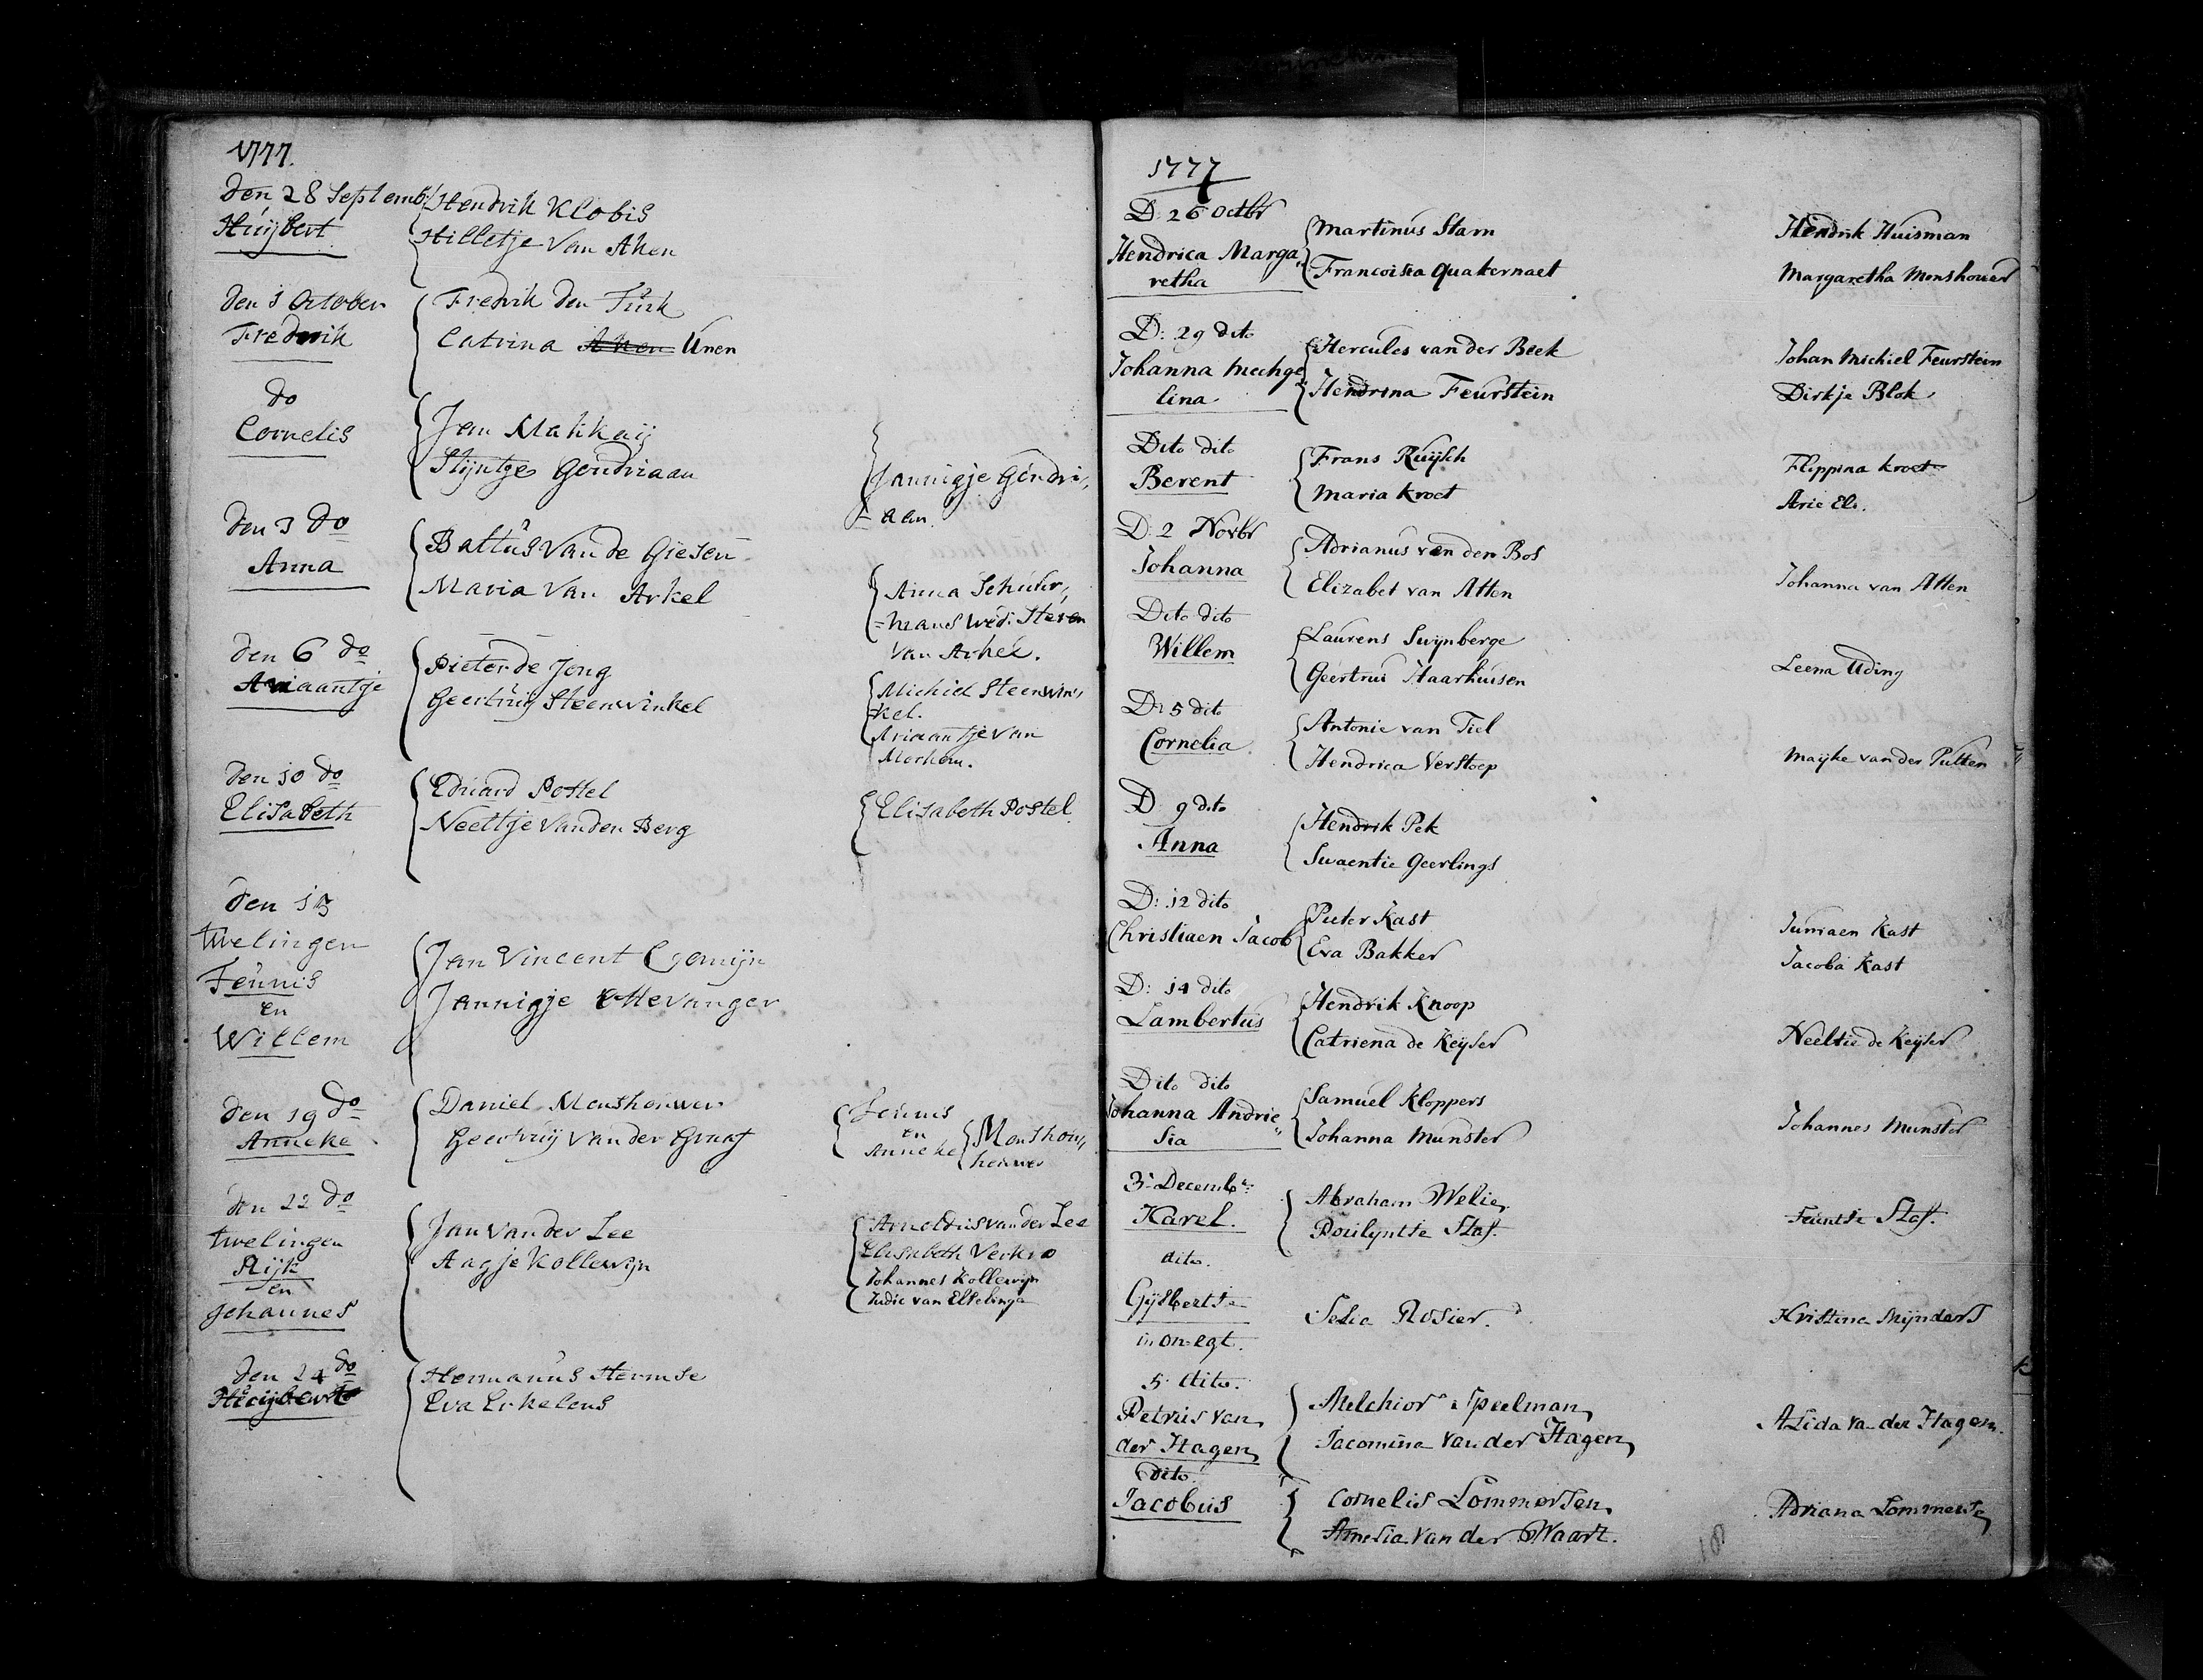 1777.
den 28 Septemb:
Huijbert
Hendrik Klobis
Hilletje Van Aken
den 1 October
Fredrik
Fredrik den Turk
Catrina Aken Unen
do
Cornelis
Jan Matikaij
Stijntge Goudriaan
Jannigje Goudri,,
=aan.
den 3 do
Anna
Baltus Van de Giesen
Maria Van Arkel
Anna Schuur,,
=mans wed: Steven
Van Arkel.
den 6 do
Ariaantje
Pieter de Jong
Geertruij Steenwinkel
Michiel Steenwin,,
kel.
Ariaantje Van
Morkom.
den 10 do
Elisabeth
Eduard Postel
Neeltje Van den Berg
Elisabeth Postel
den 13
twelingen
Teunis
en
Willem
Jan Vincent Comijn
Jannigje Ottevanger
den 19 do
Anneke
Daniel Monshouwer
Geertruij Van der Graaf
Teunis
en
Anneke
Monshou,,
houwer
den 22 do
twelingen
Rijk
en
Johannes
Jan Van der Lee
Aagje Kollewijn
Arnoldus van der Lee
Elisabeth Verkro
Johannes Kollewijn
Judic van Elselinga
den 24 do
Huijbert
Hermanus Hermse
Eva Erkelens
1777
D. 26 Octbr
Hendrica Marga,,
retha
Martinus Stam
Francoisia Quakernaet
Hendrik Huisman
Margaretha Monshouer
D: 29 dito
Johanna Mechge,,
lina
Hercules van der Beek
Hendrina Feurstein
Johan Michiel Feurstein
Dirkje Blok
Dito dito
Berent
Frans Ruijsch
Maria Kroet
Flippina Kroet
Arie El.
D. 2 Novbr
Johanna
Adrianus van den Bos
Elizabet van Atten
Johanna van Atten
Dito dito
Willem
Laurens Swijnberge
Geertrui Haarhuisen
Leena Uding
D: 5 dito
Cornelia
Antonie van Tiel
Hendrica Verstoep
Maijke van der Putten
D. 9 dito
Anna
Hendrik Pek
Swaentie Geerlings
D: 12 dito
Christiaen Jacob
Pieter Kast
Eva Bakker
Jurriaen Kast
Jacoba Kast
D: 14 dito
Lambertus
Hendrik Knoop
Catriena de Keijser
Neeltie de Keijser
Dito dito
Johanna Andrie,,
sia
Samuel Kloppers
Johanna Munster
Johannes Munster
3 Decembr:
Karel.
Abraham Welie
Poulijntje Staf.
Teuntje Staf.
dito.
Gijsbertje
in on-egt.
Selia Rosier.
Kristina Mijnders
5 dito.
Petrus van
der Hagen
Melchior Speelman
Jacomina Van der Hagen
Alida van der Hagen.
dito.
Jacobus
Cornelis Lommersen
Amelia Van der Waart.
Adriana Lommerse
101